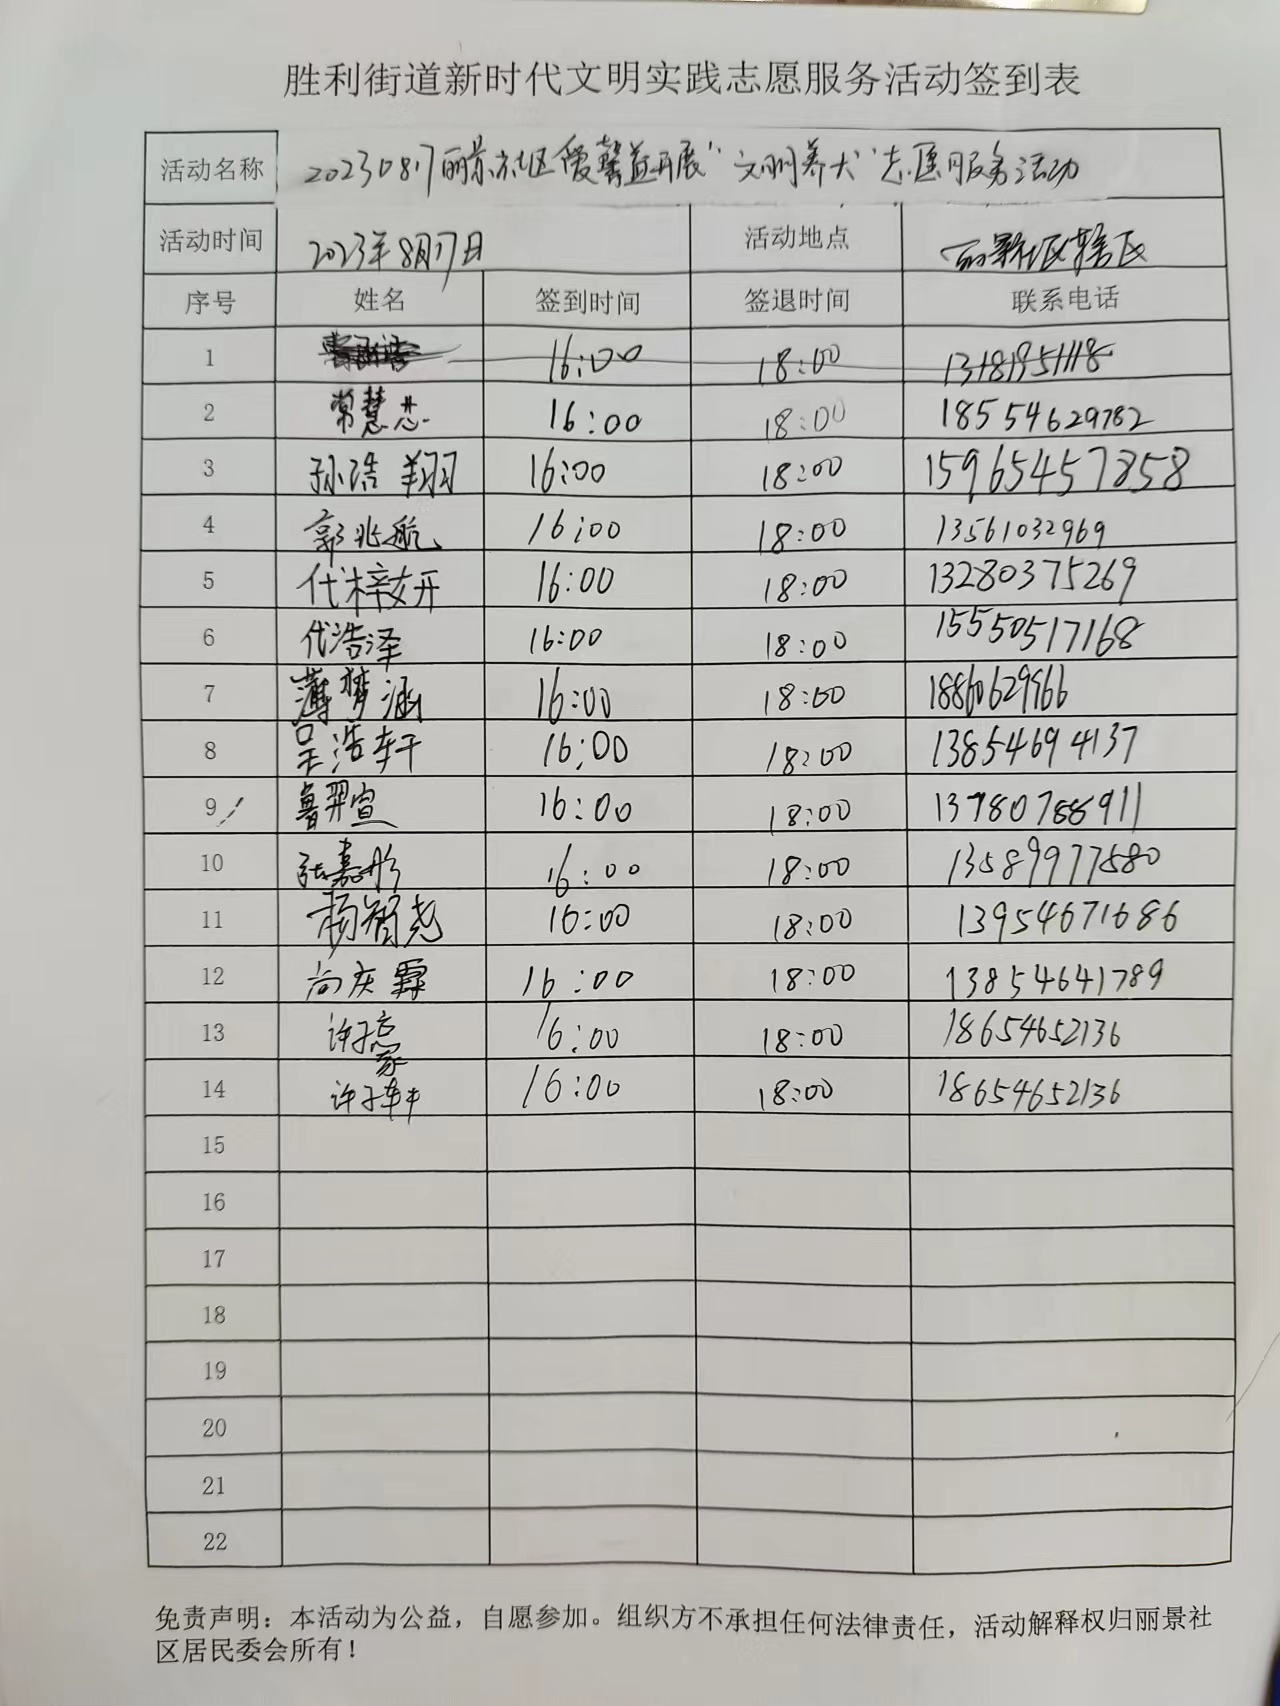 胜利街道新时代文明实践志愿服务活动签到表
活动名称 20230817丽景社区爱馨益开展“文明养犬”志愿服务活动
活动时间 2023年8月17日 活动地点 丽景社区辖区
序号 姓名 签到时间 签退时间 联系电话
1 16:00 18:00
2 常慧芯 16:00 18:00 18554629782
3 孙浩翔 16:00 18:00 15965457858
4 郭兆航 16:00 18:00 13561032969
5 代梓妍 16:00 18:00 13280375269
6 代浩泽 16:00 18:00 15550517168
7 薄梦涵 16:00 18:00 18860629966
8 吴浩轩 16:00 18:00 13854694137
9 鲁羿萱 16:00 18:00 13780788911
10 张嘉彤 16:00 18:00 13589977580
11 杨智尧 16:00 18:00 13954671686
12 尚庆霖 16:00 18:00 13854641789
13 许子 16:00 18:00 18654652136
14 许子 16:00 18:00 18654652136
15
16
17
18
19
20
21
22
免责声明：本活动为公益，自愿参加。组织方不承担任何法律责任，活动解释权归丽景社
区居民委会所有！